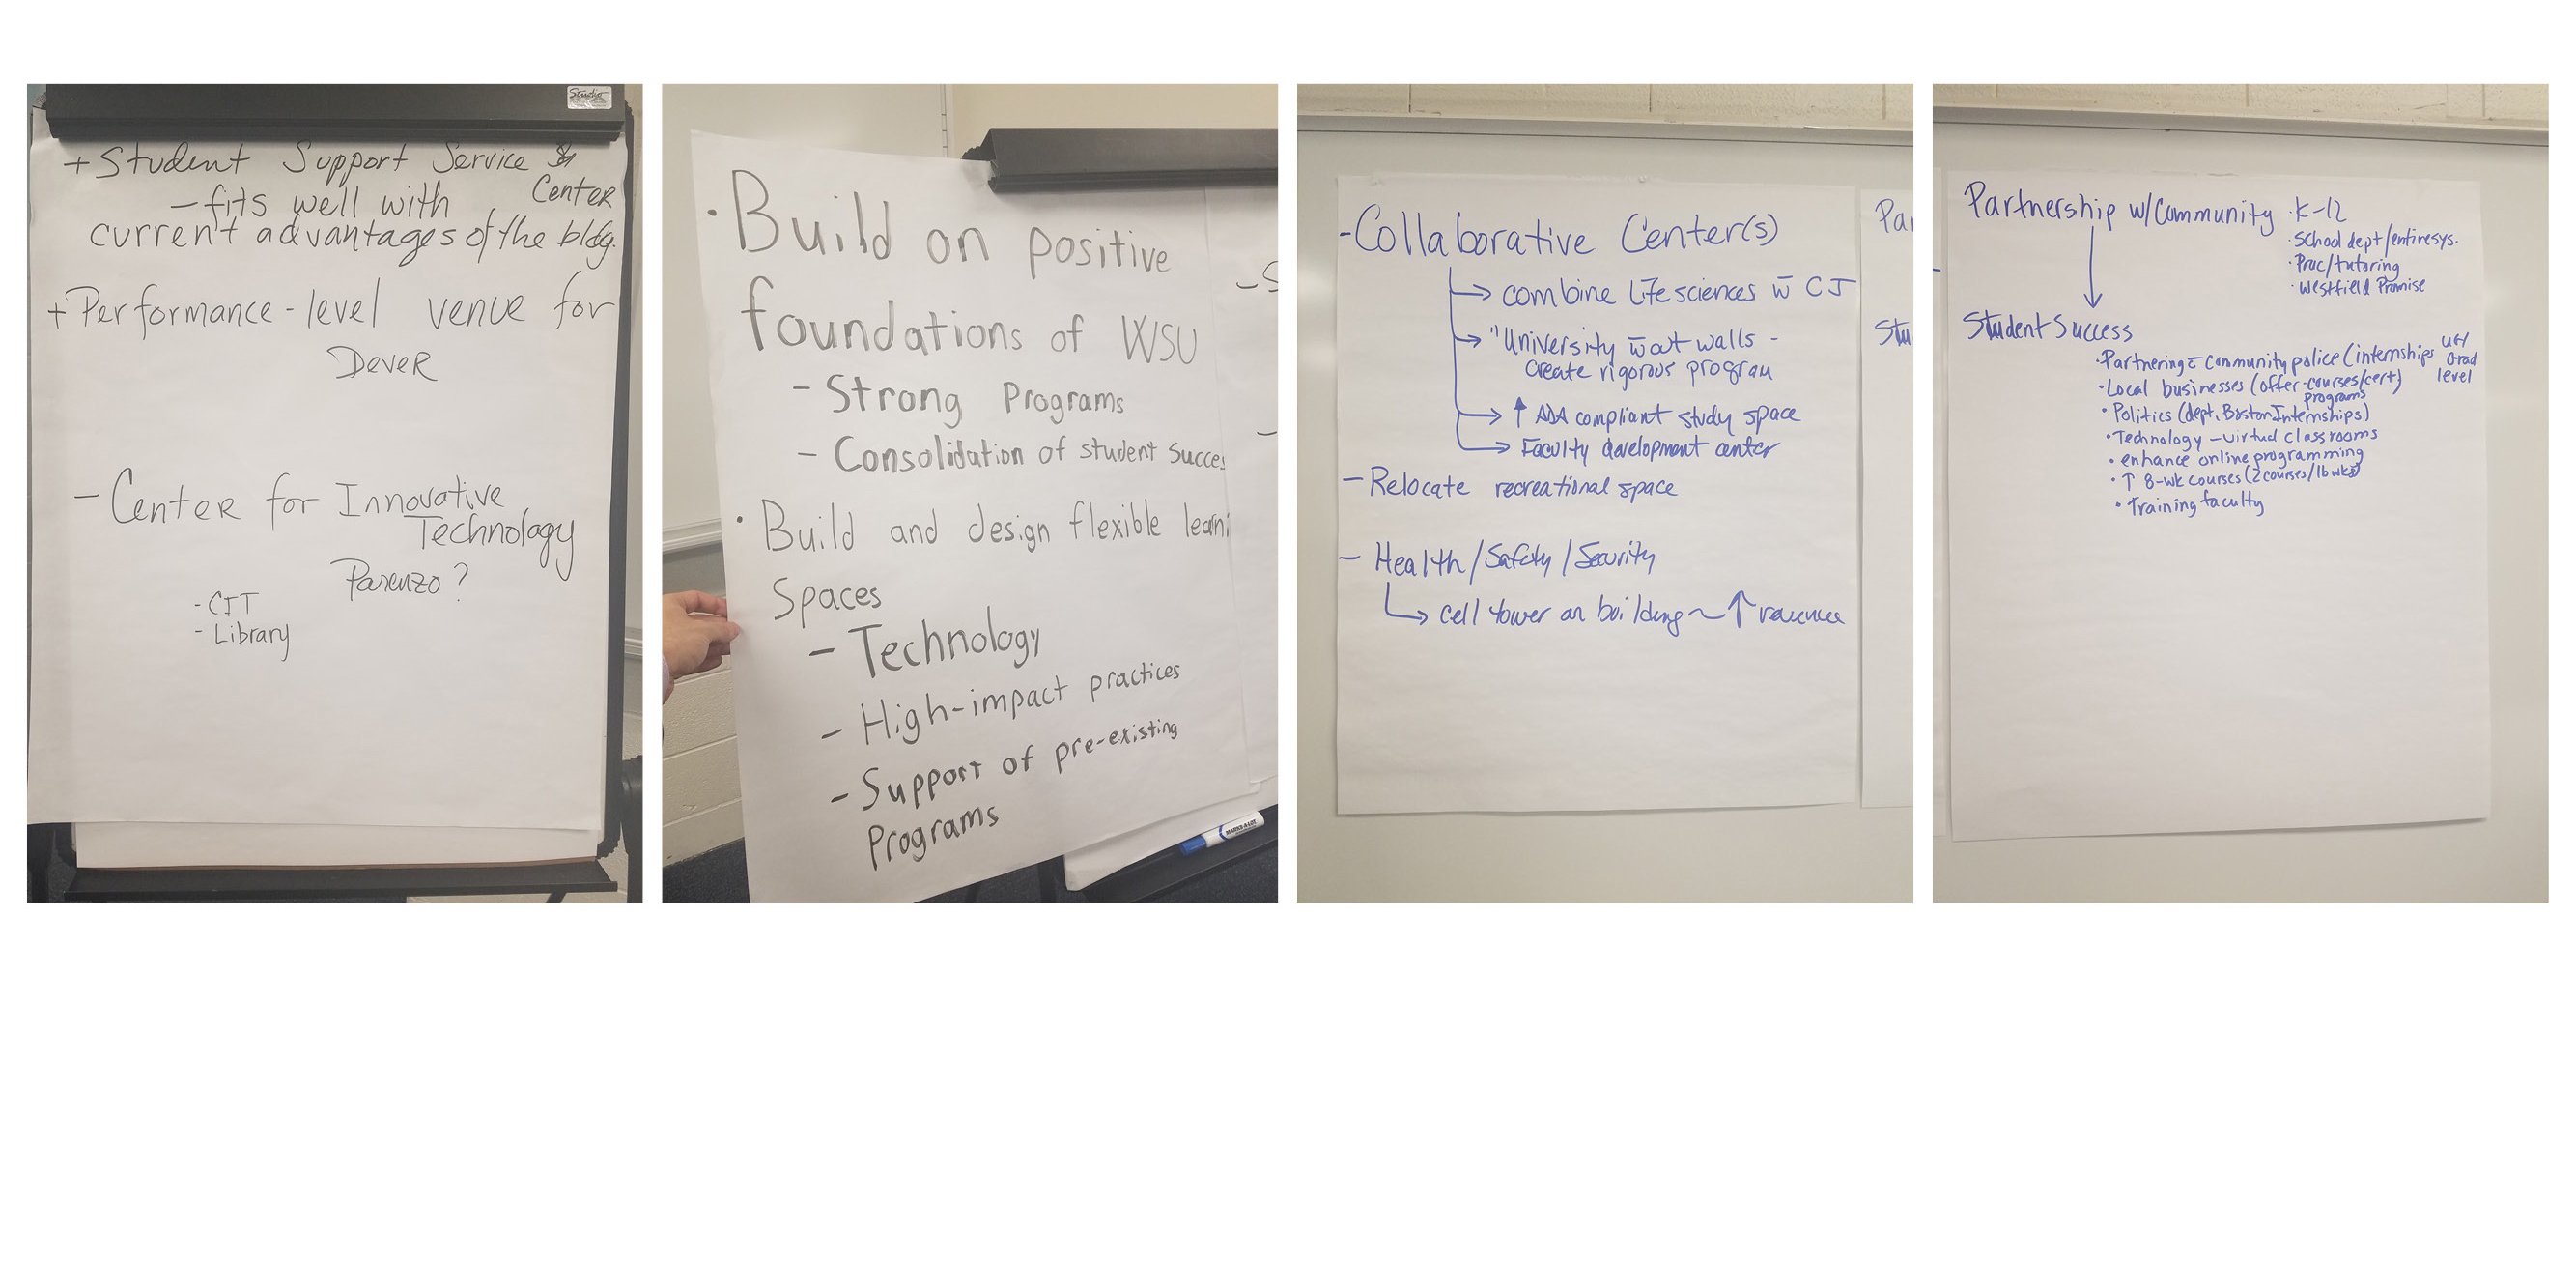 Studio
+ Student Support Service
Center
- fits well with
current advantages of the bldg.
+ Performance-level venue for
Dever
- Center for Innovative
Technology
Parenzo?
- CIT
- Library
· Build on positive
foundations of WSU
- Strong Programs
- Consolidation of student Succes
· Build and design flexible learni
Spaces
- Technology
- High-impact practices
- Support of pre-existing
Programs
- S
-
MARKS-A-LOT
- Collaborative Center(s)
→ combine Life sciences w̄ CJ
→ "University w̄out walls -
create rigorous program
→ ↑ ADA compliant study space
→ Faculty development center
- Relocate recreational space
- Health/Safety/Security
→ cell tower on building ~ ↑ revenue
Par
Stu
Partnership w/Community · K-12
· School dept/entire sys.
· Prac/tutoring
· Westfield Promise
Student Success
· Partnering c̄ community police (internships
Grad
level
· Local businesses (offer courses/cert)
programs
· Politics (dept, Boston Internships)
· Technology - virtual classrooms
· enhance online programming
· ↑ 8-wk courses (2 courses/16 wks)
· Training faculty